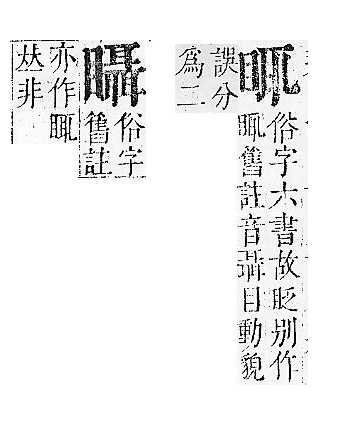 俗字六書故眨別作
舊註音聶目動貌
誤分
爲二
𥍉
俗字
舊註
亦作
𠀤非